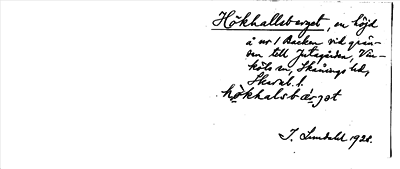 Hökhallsberget, en höjd
å nr 1 Backen vid grän-
sen till Jutagården, Vin-
köls sn, Skånings hd,
Skarab. l.
hökhalsbærjat
J. Lundahl 1928.